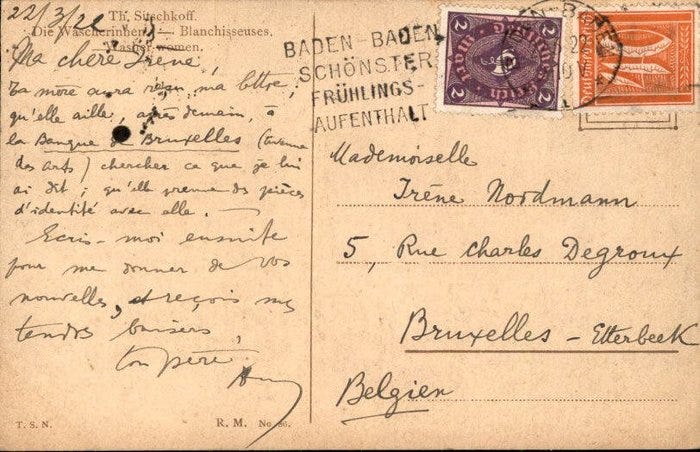 22/3/22
Th. Sitschkoff.
Die Wäscherinnen — Blanchisseuses.
Washer-women.
Ma chère Irène,
Ta mère aura reçu ma lettre;
qu'elle aille, après demain, à
la Banque de Bruxelles (avenue
des Arts) chercher ce que je lui
ai dit; qu'elle prenne des pièces
d'identité avec elle.
Ecris-moi ensuite
pour me donner de vos
nouvelles, et reçois mes
tendres baisers,
ton père
T. S. N. R. M. No.
BADEN-BADEN
SCHÖNSTER
FRÜHLINGS-
AUFENTHALT
2 2
2 2
Mademoiselle
Irène Nordmann
5, Rue Charles Degroux
Bruxelles - Etterbeek
Belgien